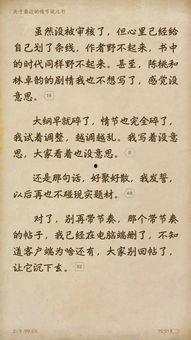 关于最近的情节说几句
虽然没被审核了，但心里已经给
自己划了条线，作者野不起来，书中
的时代同样野不起来。甚至，陈桃和
林卓韵的剧情我也不想写了，感觉没
意思。 19
大纲早就碎了，情节也完全碎了，
我试着调整，越调越乱。我写着没意
思，大家看着也没意思。 8
还是那句话，好聚好散，我发誓，
以后再也不碰现实题材。 48
对了，别再带节奏，那个带节奏
的帖子，我已经在电脑端删了，不知
道客户端为啥还有，大家别回帖了，
让它沉下去。 32